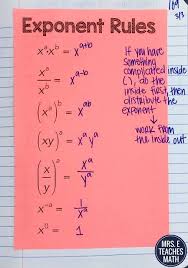 109
3/3
Exponent Rules
xᵃxᵇ = xᵃ⁺ᵇ
xᵃ/xᵇ = xᵃ⁻ᵇ
(xᵃ)ᵇ = xᵃᵇ
(xy)ᵃ = xᵃyᵃ
(x/y)ᵃ = xᵃ/yᵃ
x⁻ᵃ = 1/xᵃ
x⁰ = 1
If you have
something
complicated inside
( ), do the
inside first, then
distribute the
exponent
→ work from
the inside out
MRS. E
TEACHES
MATH